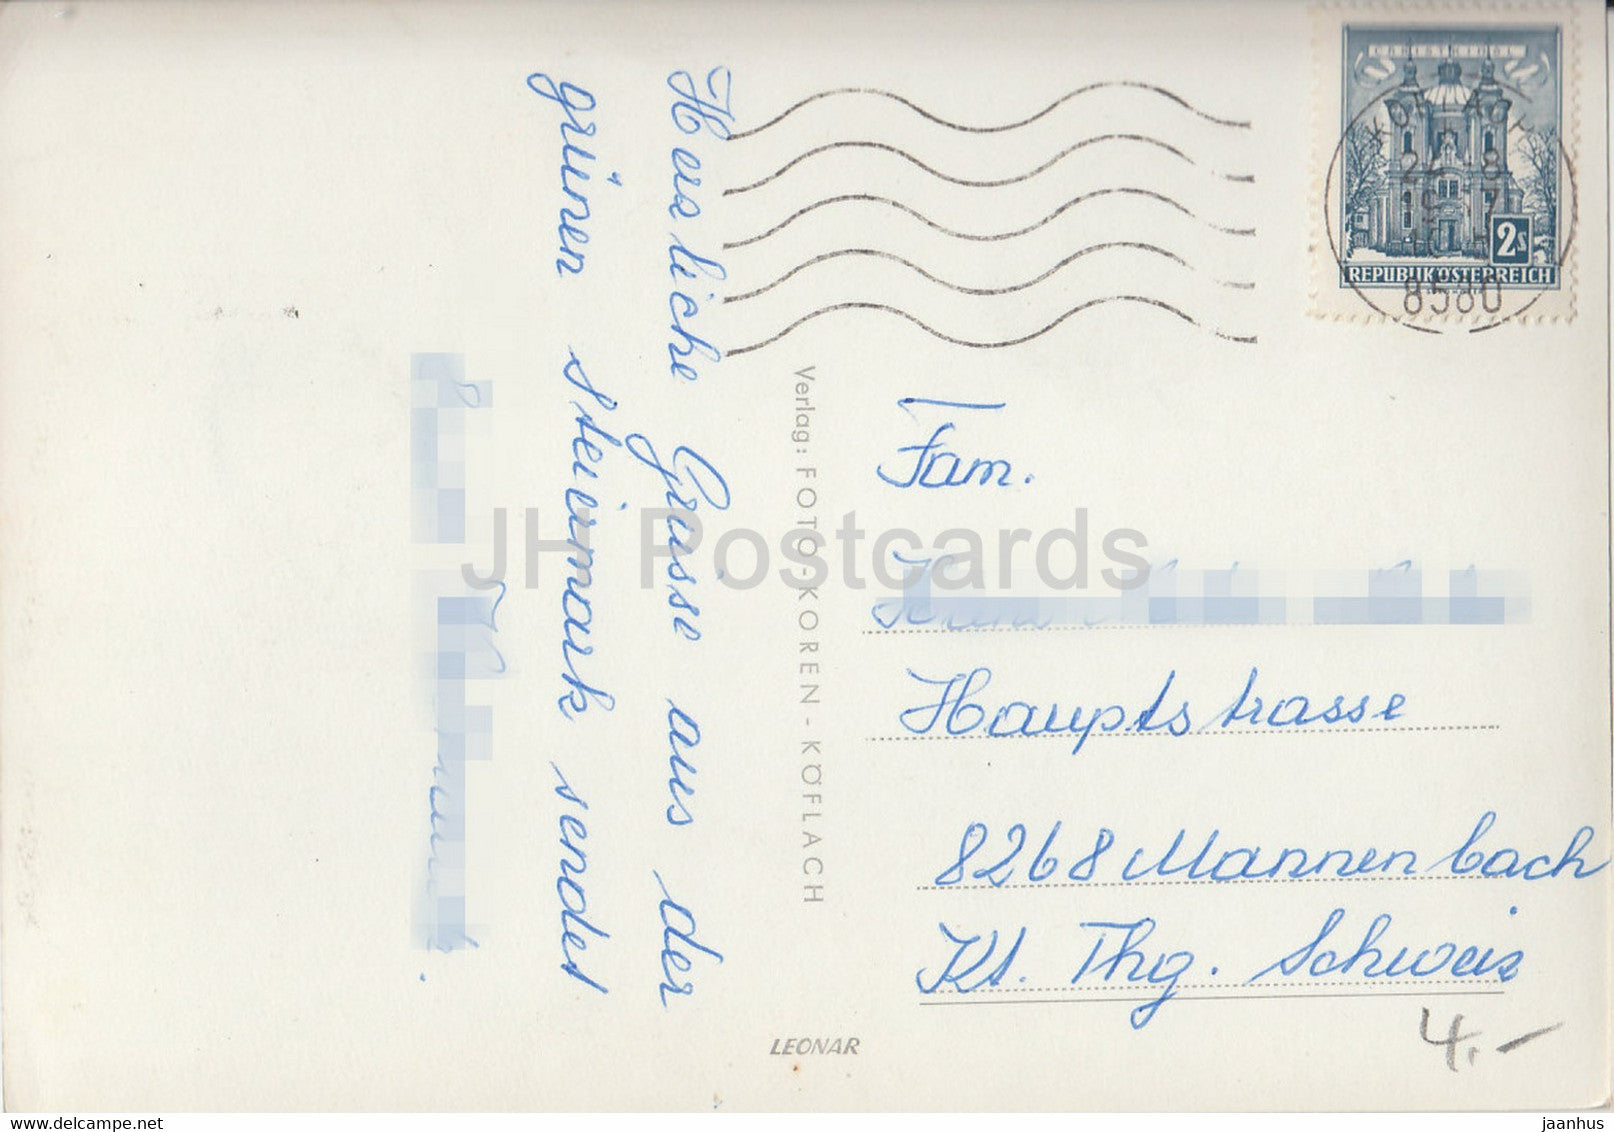 Herzliche Grüsse aus der
grünen Steiermark sendet
Verlag: FOTO-KOREN - KÖFLACH
LEONAR
CHRISTKINDL
2s
REPUBLIK ÖSTERREICH
KÖFLACH
8580
Fam.
Hauptstrasse
8268 Mannenbach
Kt. Thg. Schweiz
4.-
JH Postcards
delcampe.net
jaanhus